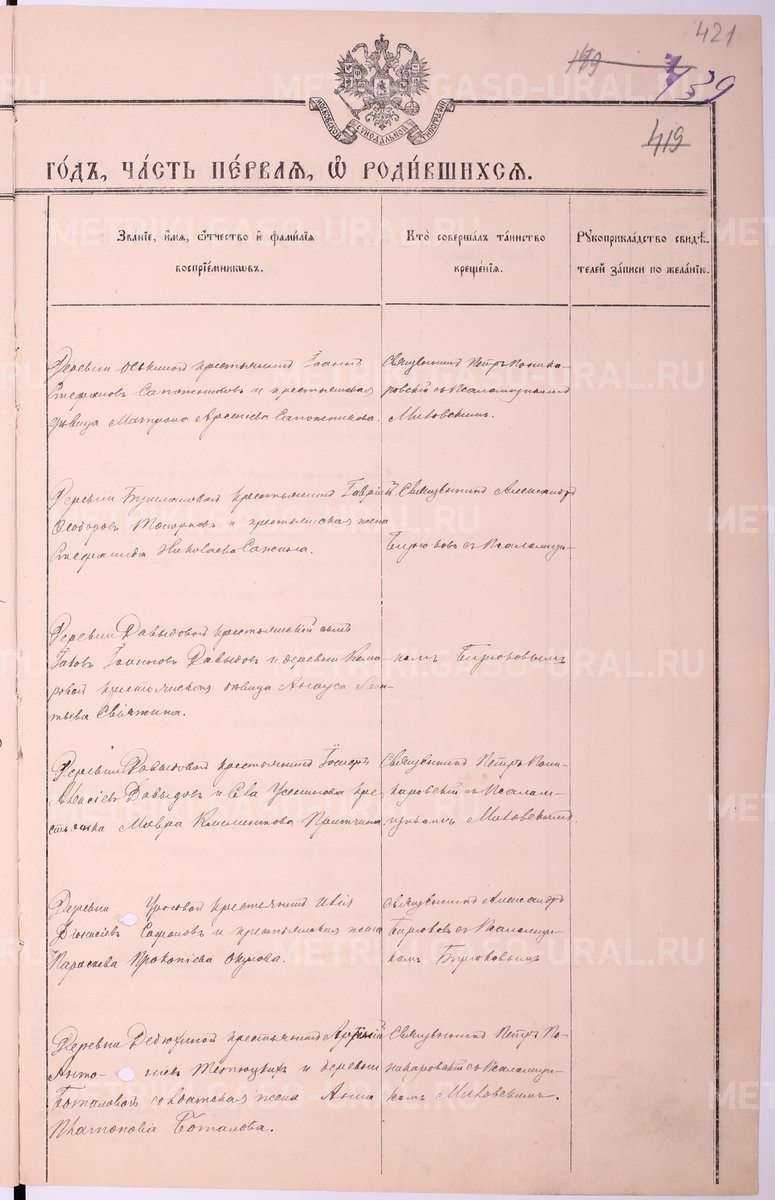 421
179
759
419
МОСКОВСКОЙ СѴНОДАЛЬНОЙ ТИПОГРАФІИ
ГО́ДЪ, ЧА́СТЬ ПЕ́РВАЯ, Ѽ РОДИ́ВШИХСЯ.
Зва́ніе, и́мя, ѻ́тчество и҆ фами́лія
воспріе́мниковъ.
Кто̀ соверша́лъ та́инство
креще́нія.
Рꙋкоприкла́дство свидѣ́-
телей за́писи по жела́нію.
Деревни крестьянинъ Іоаннъ
Стефановъ Сапожниковъ и крестьянская
дѣвица Матрона Арсеніева Сапожникова.
Священникъ Петръ Пона-
ровскій съ Псаломщикомъ
Миковскимъ.
Деревни крестьянинъ Гавріилъ
Топорковъ и крестьянская жена
Стефанида Николаева Сажина.
Священникъ Александръ
Бирюковъ съ Псаломщи-
Деревни Давыдовой крестьянскій сынъ
Іаковъ Іоанновъ Давыдовъ и деревни Кома-
ровой крестьянская дѣвица Анна Леон-
тьева Свяжина.
комъ Бирюковымъ
Деревни Давыдовой крестьянинъ Іосифъ
Давыдовъ и Села кре-
стьянка Мавра Климентова
Священникъ Петръ Пони-
каровскій съ Псалом-
щикомъ Миковскимъ.
Деревни крестьянинъ
Діонисіевъ Сафроновъ и крестьянская жена
Параскева Прокопіева Окулова.
Священникъ Александръ
Бирюковъ съ Псаломщи-
комъ Бирюковымъ
Деревни Дедюхиной крестьянинъ
Анто-ніевъ и деревни
Боталовой солдатская жена Анна
Платонова Боталова.
Священникъ Петръ По-
никаровскій съ Псаломщи-
комъ Миковскимъ.
METRIKI.GASO-URAL.RU